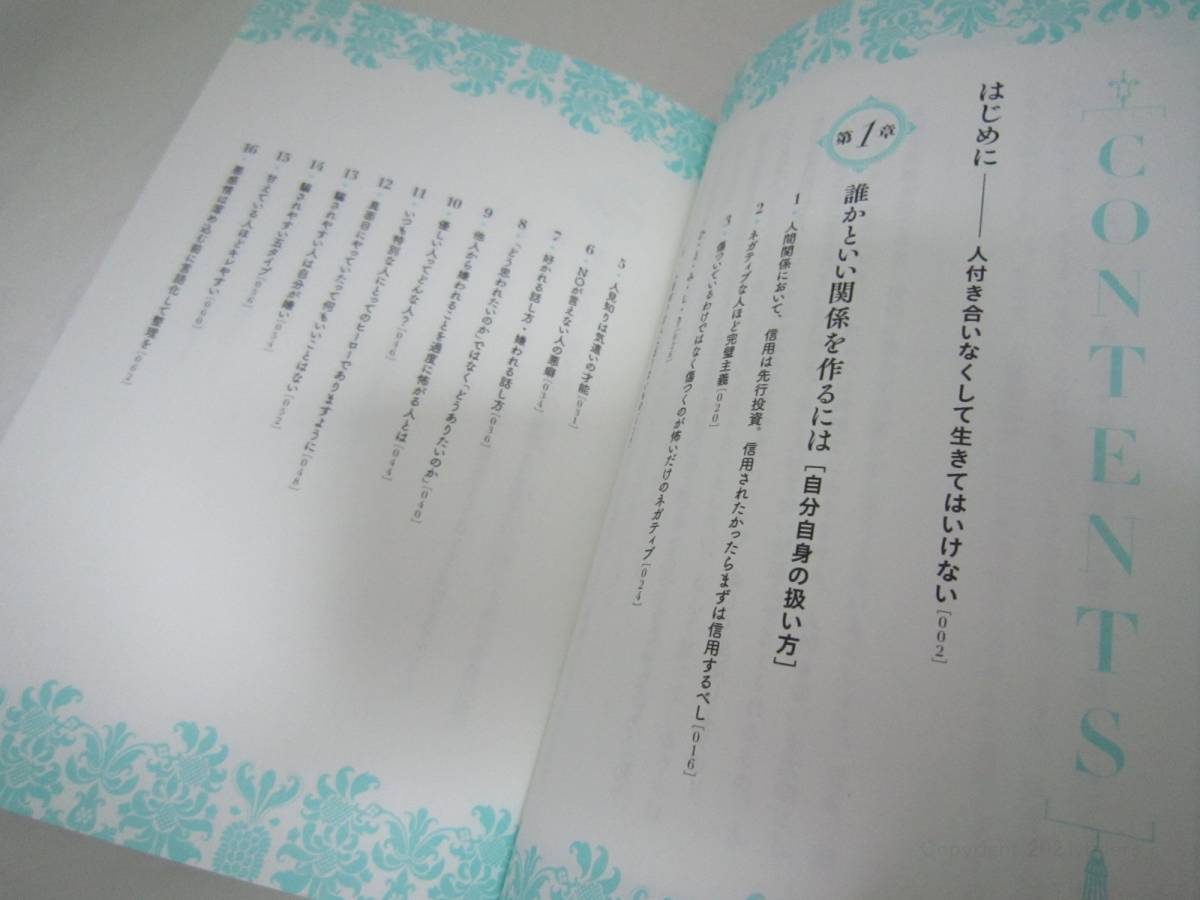 CONTENTS
はじめに――人付き合いなくして生きてはいけない[002]
第1章 誰かといい関係を作るには[自分自身の扱い方]
1 人間関係において、信用は先行投資。信用されたかったらまずは信用するべし[016]
2 ネガティブな人ほど完璧主義[020]
3 傷ついているわけではなく傷つくのが怖いだけのネガティブ[024]
5 人見知りは気遣いの才能[031]
6 NOが言えない人の悪癖[034]
7 好かれる話し方・嫌われる話し方[036]
8 「どう思われたいのか」ではなく「どうありたいのか」[040]
9 他人から嫌われることを過度に怖がる人とは[044]
10 優しい人ってどんな人?[046]
11 いつも特別な人にとってのヒーローでありますように[048]
12 真面目にやっていたって何もいいことはない[052]
13 騙されやすい人は自分が嫌い
14 騙されやすい五タイプ
15 甘えている人ほどキレやすい[060]
16 悪感情は溜め込む前に言語化して整理を[062]